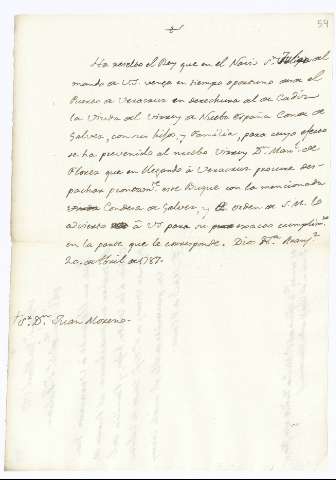 54
Ha resuelto el Rey que en el Navio Sn. Felipe al
mando de VS. venga en tiempo oportuno desde el
Puerto de Veracruz en derechura al de Cadiz
la Viuda del Virrey de Nueva España Conde de
Galvez, con sus hijos, y Familia, para cuyo efecto
se ha prevenido al nuebo Virrey Dn. Manl. de
Flores que en llegando à Veracruz procure des-
pachar prontamte. ese Buque con la mencionada
Condesa de Galvez, y de orden de S.M. lo
advierto à VS para su exacto cumplimto.
en la parte que le corresponde. Dios &a. Aranjz.
20. de Abril de 1787.
Sr. Dn. Juan Moreno.